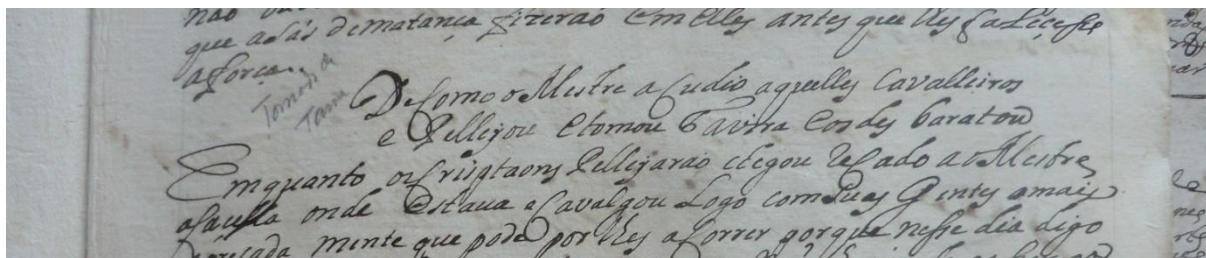 que asás de matança fizerão em elles antes que lhes falecesse
a força.
Tomada de
Tavira
De Como o Mestre acudio aquelles Cavalleiros
e Pellejou e tomou Tavira e os desbaratou
Emquanto os Cristaons Pellejarão chegou Recado ao Mestre
onde Estava e Cavalgou Logo com suas Gentes a mais
apresada mente que pode por lhes acorrer porque nesse dia digo